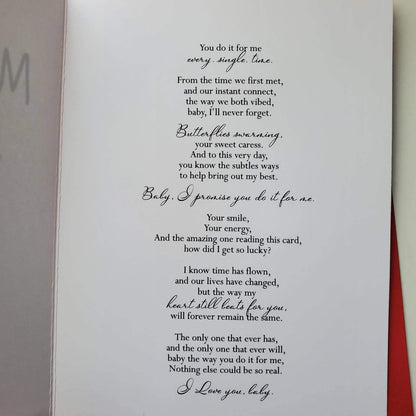 M
You do it for me
every. single. time.
From the time we first met,
and our instant connect,
the way we both vibed,
baby, I'll never forget.
Butterflies swarming,
your sweet caress.
And to this very day,
you know the subtles ways
to help bring out my best.
Baby, I promise you do it for me.
Your smile,
Your energy,
And the amazing one reading this card,
how did I get so lucky?
I know time has flown,
and our lives have changed,
but the way my
heart still beats for you,
will forever remain the same.
The only one that ever has,
and the only one that ever will,
baby the way you do it for me,
Nothing else could be so real.
I Love you, baby.